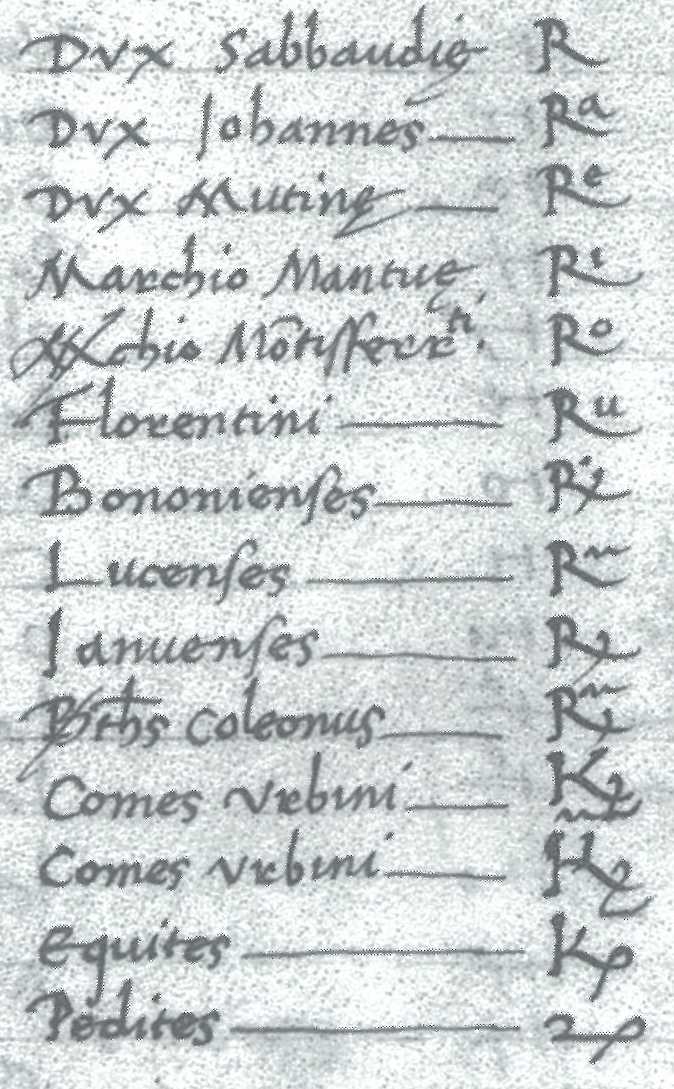 Dvx Sabbaudię R
Dvx Johannes R^a
Dvx Mutinę R^e
Marchio Mantuę R^i
chio Mōtisferr^ti. R^o
Florentini R^u
Bononienses
Lucenses
Januenses
Coleonus
Comes Vrbini
Comes Vrbini
Equites
Pedites